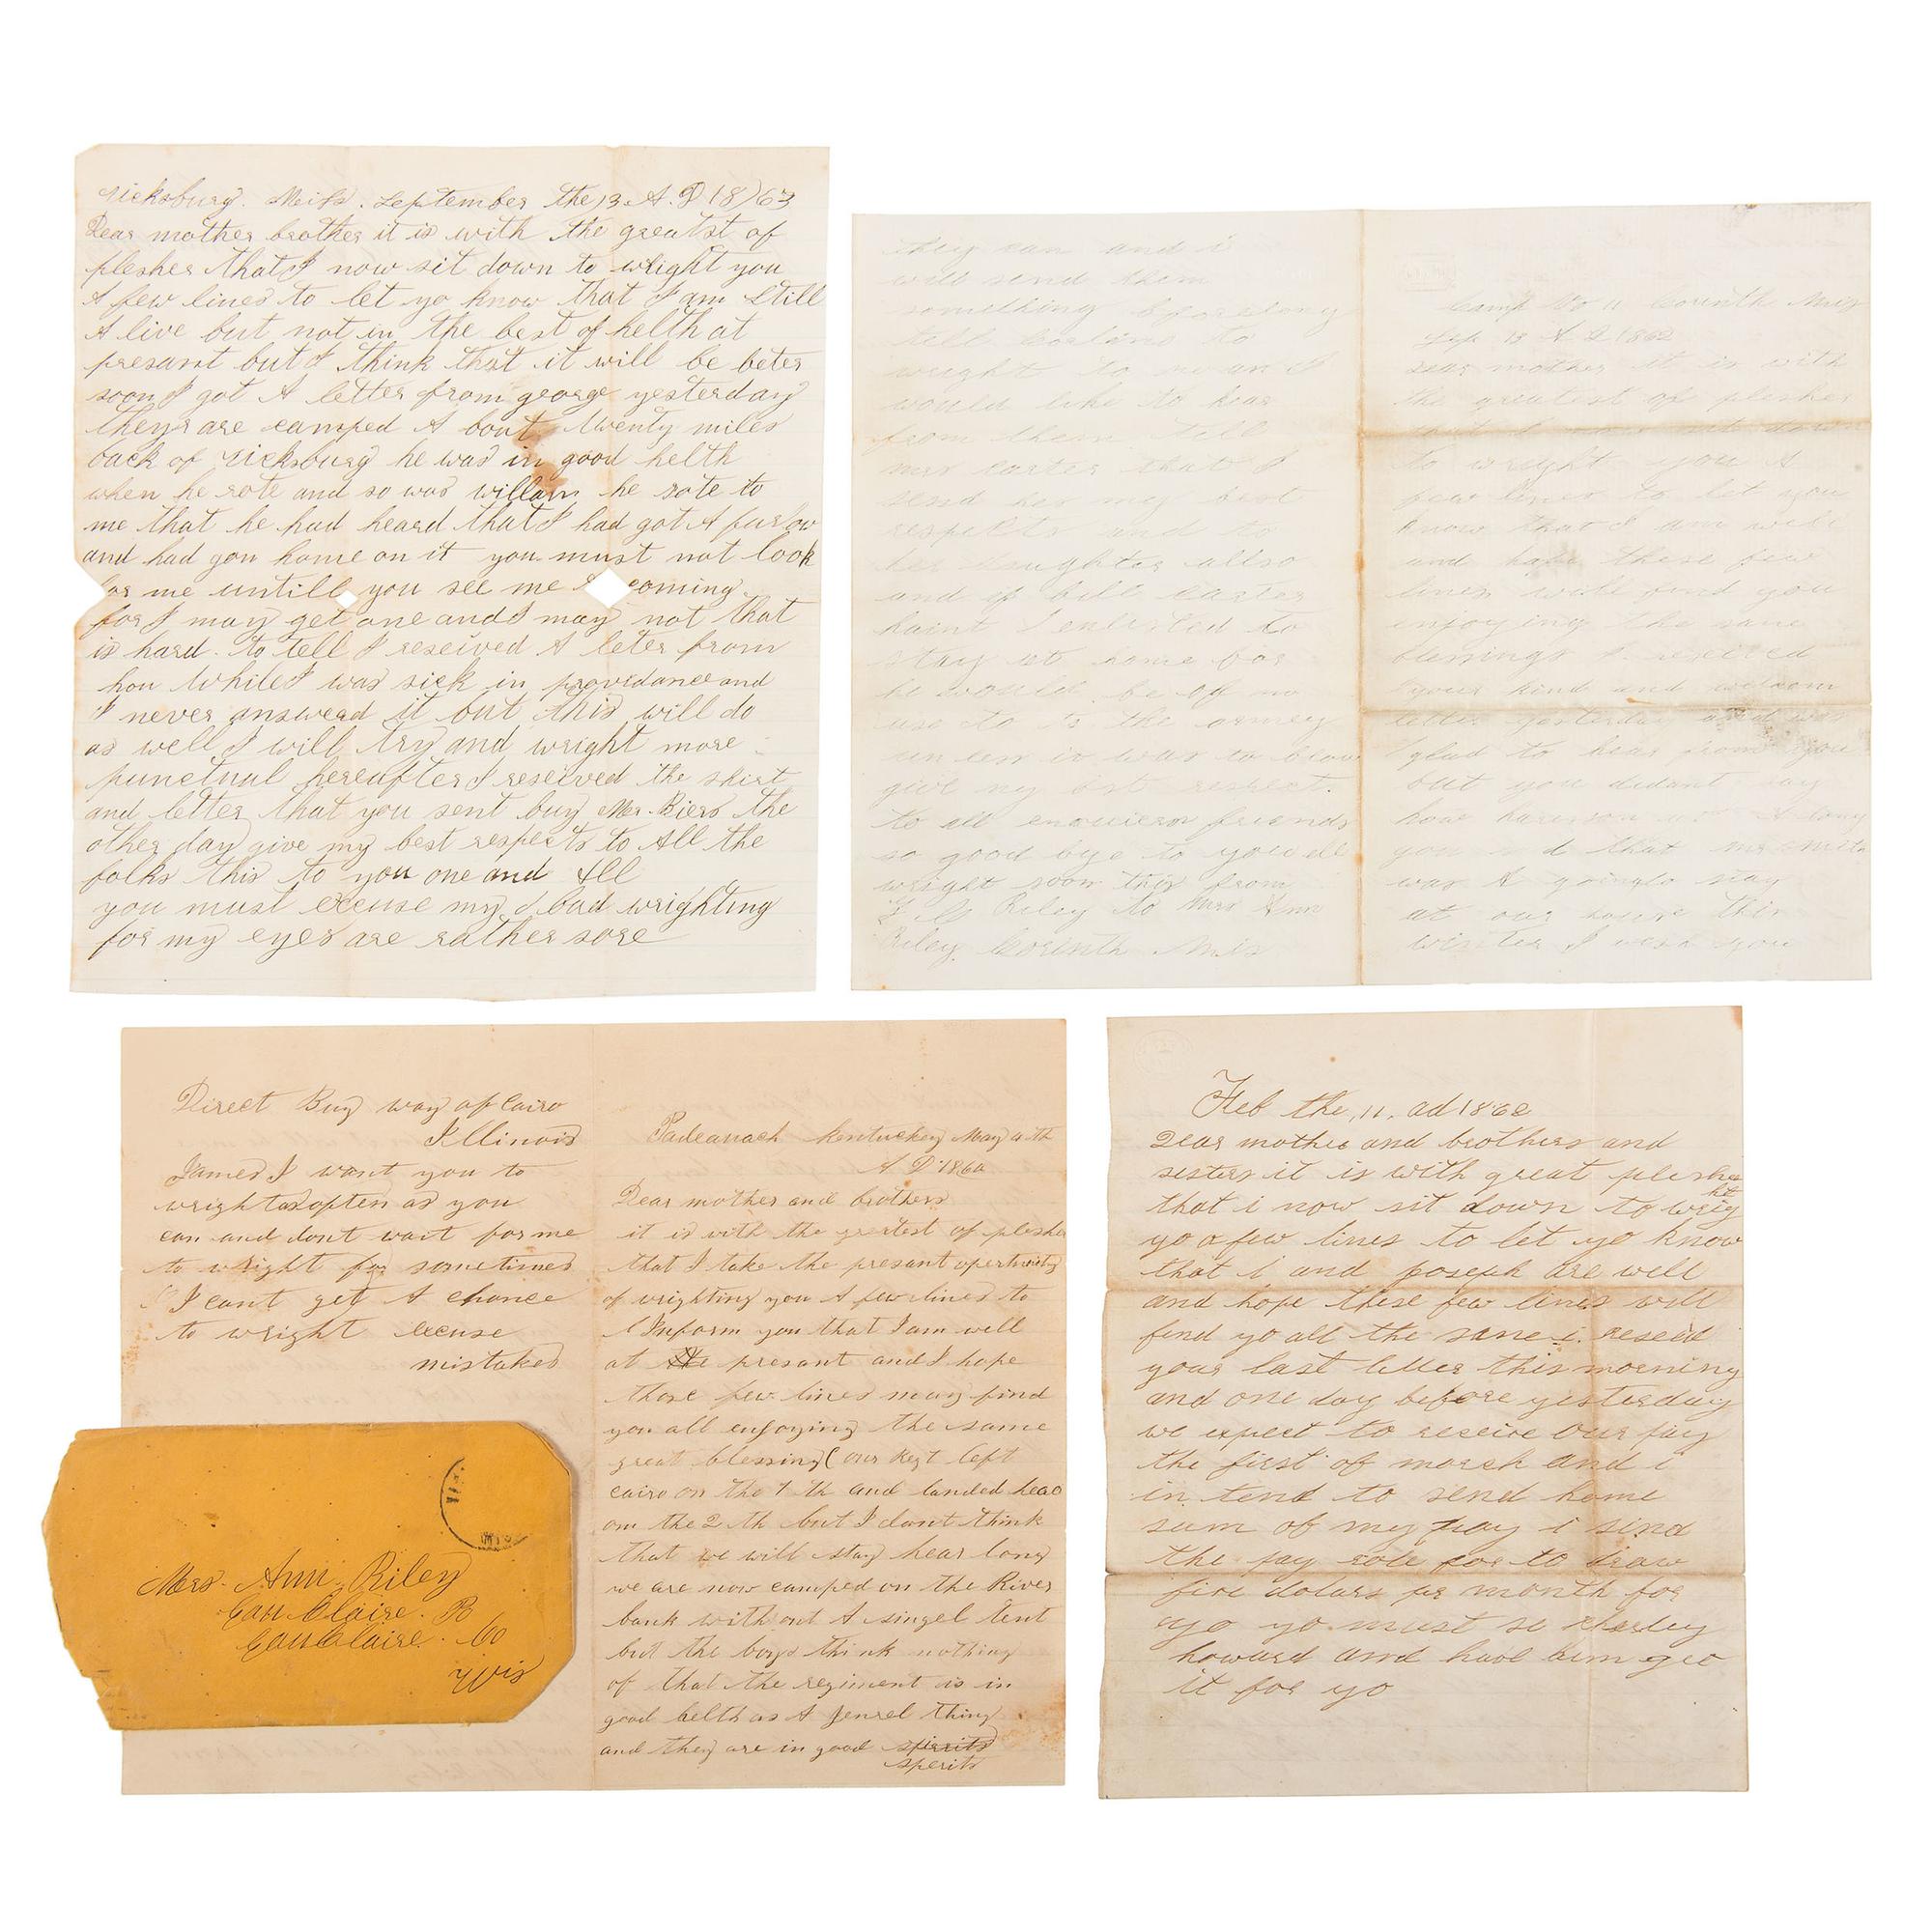 Vicksburg. Miss. September the 13 A.D 18)63
Dear mother brother it is with the greatst of
plesher that I now sit down to wright you
A few lines to let yo know that I am still
A live but not in the best of helth at
presant but I think that it will be beter
soon I got A letter from george yesterday
they are camped A bout twenty miles
back of Vicksburg he was in good helth
when he rote and so was willam he rote to
me that he had heard that I had got A furlow
and had gon home on it you must not look
for me untill you see me coming
for I may get one and I may not that
is hard to tell I reseived A leter from
hou while I was sick in providance and
I never answerd it but this will do
as well I will try and wright more
punctual hereafter I reseived the shirt
and letter that you sent buy Mr. Biers the
other day give my best respects to All the
folks this to you one and All
you must excuse my bad wrighting
for my eyes are rather sore
they can and i
will send them
something before long
tell to
wright to me and I
would like to hear
from them tell
mrs carter that I
send her my best
respects and to
her daughter allso
and if bill carter
haint enlisted to
stay at home for
he would be of no
use to the armey
unless it was to blow
give my best respect.
to all friends
so good bye to you all
wright soon this from
Riley to Mrs Ann
Riley Corinth Mis
Camp No 11 Corinth Miss
Sep 13 A D 1862
Dear mother it is with
the greatest of plesher
that I now set down
to wright you A
few lines to let you
know that I am well
and hope these few
lines will find you
enjoying the same
blessings I received
your kind and welcom
letter yesterday and was
glad to hear from you
but you didant say
how was A long
you that mr
was A going to stay
at our house this
winter I wish you
Direct Buy way of Cairo
Illinois
James I want you to
wright as often as you
can and dont wait for me
to wright for sometimes
I cant get A chance
to wright excuse
mistakes
Padeanach Kentuckey May 4th
A D 1862
Dear mother and brothers
it is with the gretest of plesher
that I take the presant opertunity
of wrighting you A few lines to
Inform you that I am well
at the presant and I hope
those few lines may find
you all enjoying the same
great blessing( our Regt left
cairo on the 1 th and landed hear
on the 2 th but I dont think
that we will stay hear long
we are now camped on the River
bank without A singel tent
but the boys think nothing
of that the regiment is in
good helth as A Jenrel thing
and they are in good spirrits
sperits
Mrs. Ann Riley
Eau Claire. P
Eau Claire. Co
Wis
Feb the, 11. ad 1862
Dear mother and brothers and
sisters it is with great plesher
that i now sit down to wright
yo a few lines to let yo know
that i and Joseph are well
and hope these few lines will
find yo all the same i reseed
your last letter this morning
and one day before yesterday
we expect to receive our pay
the first of march and i
in tend to send home
sum of my pay i sind
the pay role for to draw
five dolars pr month for
yo yo must se charley
howard and have him get
it for yo